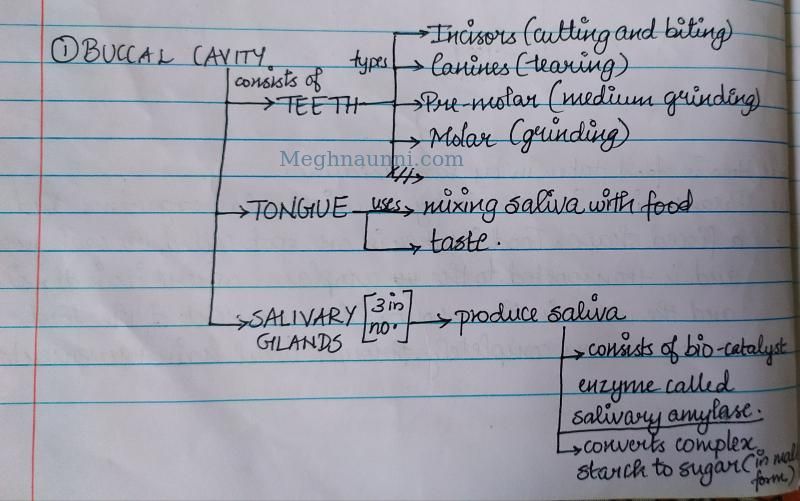 ① BUCCAL CAVITY
consists of
TEETH
types
Incisors (cutting and biting)
Canines (tearing)
Pre-molar (medium grinding)
Molar (grinding)
Meghnaunni.com
TONGUE
uses
mixing saliva with food
taste.
SALIVARY GLANDS
[3 in no.]
produce saliva
consists of bio-catalyst
enzyme called
salivary amylase.
converts complex
starch to sugar (in
form)